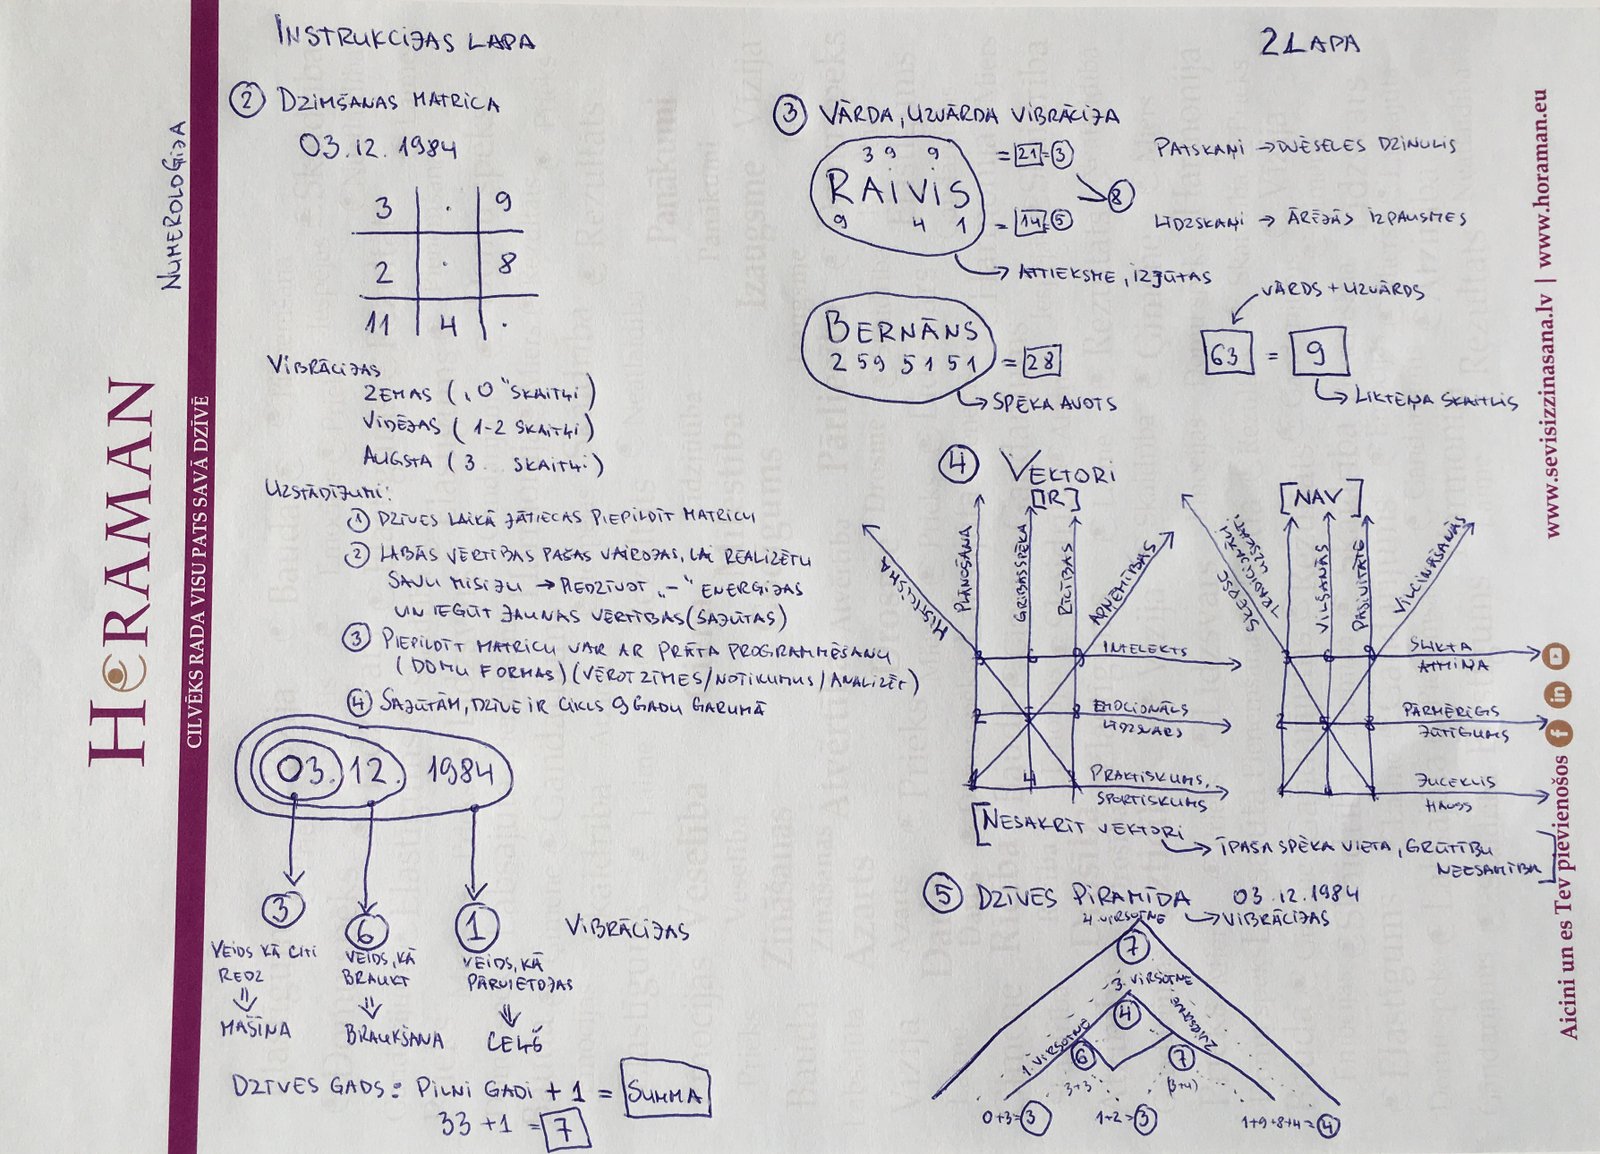 INSTRUKCIJAS LAPA
2 LAPA
NUMEROLOĢIJA
HORAMAN
CILVĒKS RADA VISU PATS SAVĀ DZĪVĒ
② DZIMŠANAS MATRICA
03.12.1984
3 . 9
2 . 8
11 4 .
VIBRĀCIJAS
ZEMAS („0" SKAITĻI)
VIDĒJAS (1-2 SKAITĻI)
AUGSTA (3. SKAITĻI)
UZSTĀDĪJUMI:
① DZĪVES LAIKĀ JĀTIECAS PIEPILDĪT MATRICU
② LABĀS VĒRTĪBAS PAŠAS VAIROJAS, LAI REALIZĒTU
SAVU MISIJU → PIEDZĪVOT „-" ENERĢIJAS
UN IEGŪT JAUNAS VĒRTĪBAS (SAJŪTAS)
③ PIEPILDĪT MATRICU VAR AR PRĀTA PROGRAMMĒŠANU
(DOMU FORMAS) (VĒROT ZĪMES/NOTIKUMUS/ANALIZĒT)
④ SAJŪTĀM, DZĪVE IR CIKLS 9 GADU GARUMĀ
03. 12. 1984
3 6 1 VIBRĀCIJAS
VEIDS KĀ CITI REDZ
⇓ MAŠĪNA
VEIDS, KĀ BRAUKT
⇓ BRAUKŠANA
VEIDS, KĀ PĀRVIETOJAS
⇓ CEĻŠ
DZĪVES GADS: PILNI GADI + 1 = SUMMA
33 + 1 = 7
③ VĀRDA, UZVĀRDA VIBRĀCIJA
3 9 9 = 21 = 3
RAIVIS
9 4 1 = 14 = 5
8
PATSKAŅI → DVĒSELES DZINULIS
LĪDZSKAŅI → ĀRĒJĀS IZPAUSMES
ATTIEKSME, IZJŪTAS
BERNĀNS
2 5 9 5 1 5 1 = 28
SPĒKA AVOTS
VĀRDS + UZVĀRDS
63 = 9
LIKTEŅA SKAITLIS
④ VEKTORI
[IR]
MISTICISMA
PLĀNOŠANA
GRIBASSPĒKA
RĪCĪBAS
APŅĒMĪBAS
INTELEKTS
EMOCIONĀLS
LĪDZSVARS
PRAKTISKUMS,
SPORTISKUMS
[NAV]
TRADICIONĀLI
VILŠANĀS
PASIVITĀTE
VILCINĀŠANĀS
SLIKTA
ATMIŅA
PĀRMĒRĪGS
JŪTĪGUMS
JUCEKLIS
HAOSS
[NESAKRĪT VEKTORI
→ ĪPAŠA SPĒKA VIETA, GRŪTĪBU
NEESAMĪBA]
⑤ DZĪVES PIRAMĪDA 03.12.1984
→ VIBRĀCIJAS
4 VIRSOTNE
7
3. VIRSOTNE
4
1. VIRSOTNE
2 VIRSOTNE
6 7
3+3 (3+4)
0+3=3 1+2=3 1+9+8+4=4
www.sevisizzinasana.lv | www.horaman.eu
Aicini un es Tev pievienošos